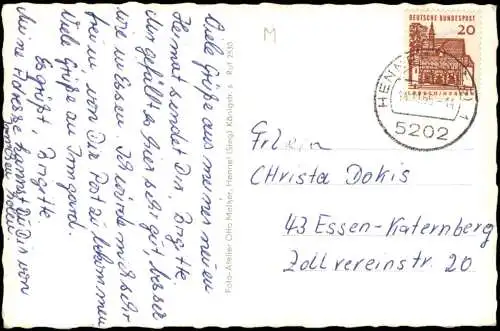 Viele Grüße aus meiner neuen
Heimat sendet Dir, Birgitte.
Mir gefällt es hier sehr gut, besser
wie in Essen. Ich würde mich sehr
freuen, von Dir Post zu bekommen.
Viele Grüße an Irmgard.
Es grüßt, Birgitte.
Meine Adresse kannst Du Dir von
holen
Foto-Atelier Otto Mathar, Hennef (Sieg), Königstr. 6 Ruf 2550
M
DEUTSCHE BUNDESPOST
20
LORSCH/HESSEN
HENNEF 1
5202
Frl.
Christa Dokis
43 Essen-Katernberg
Zollvereinstr. 20